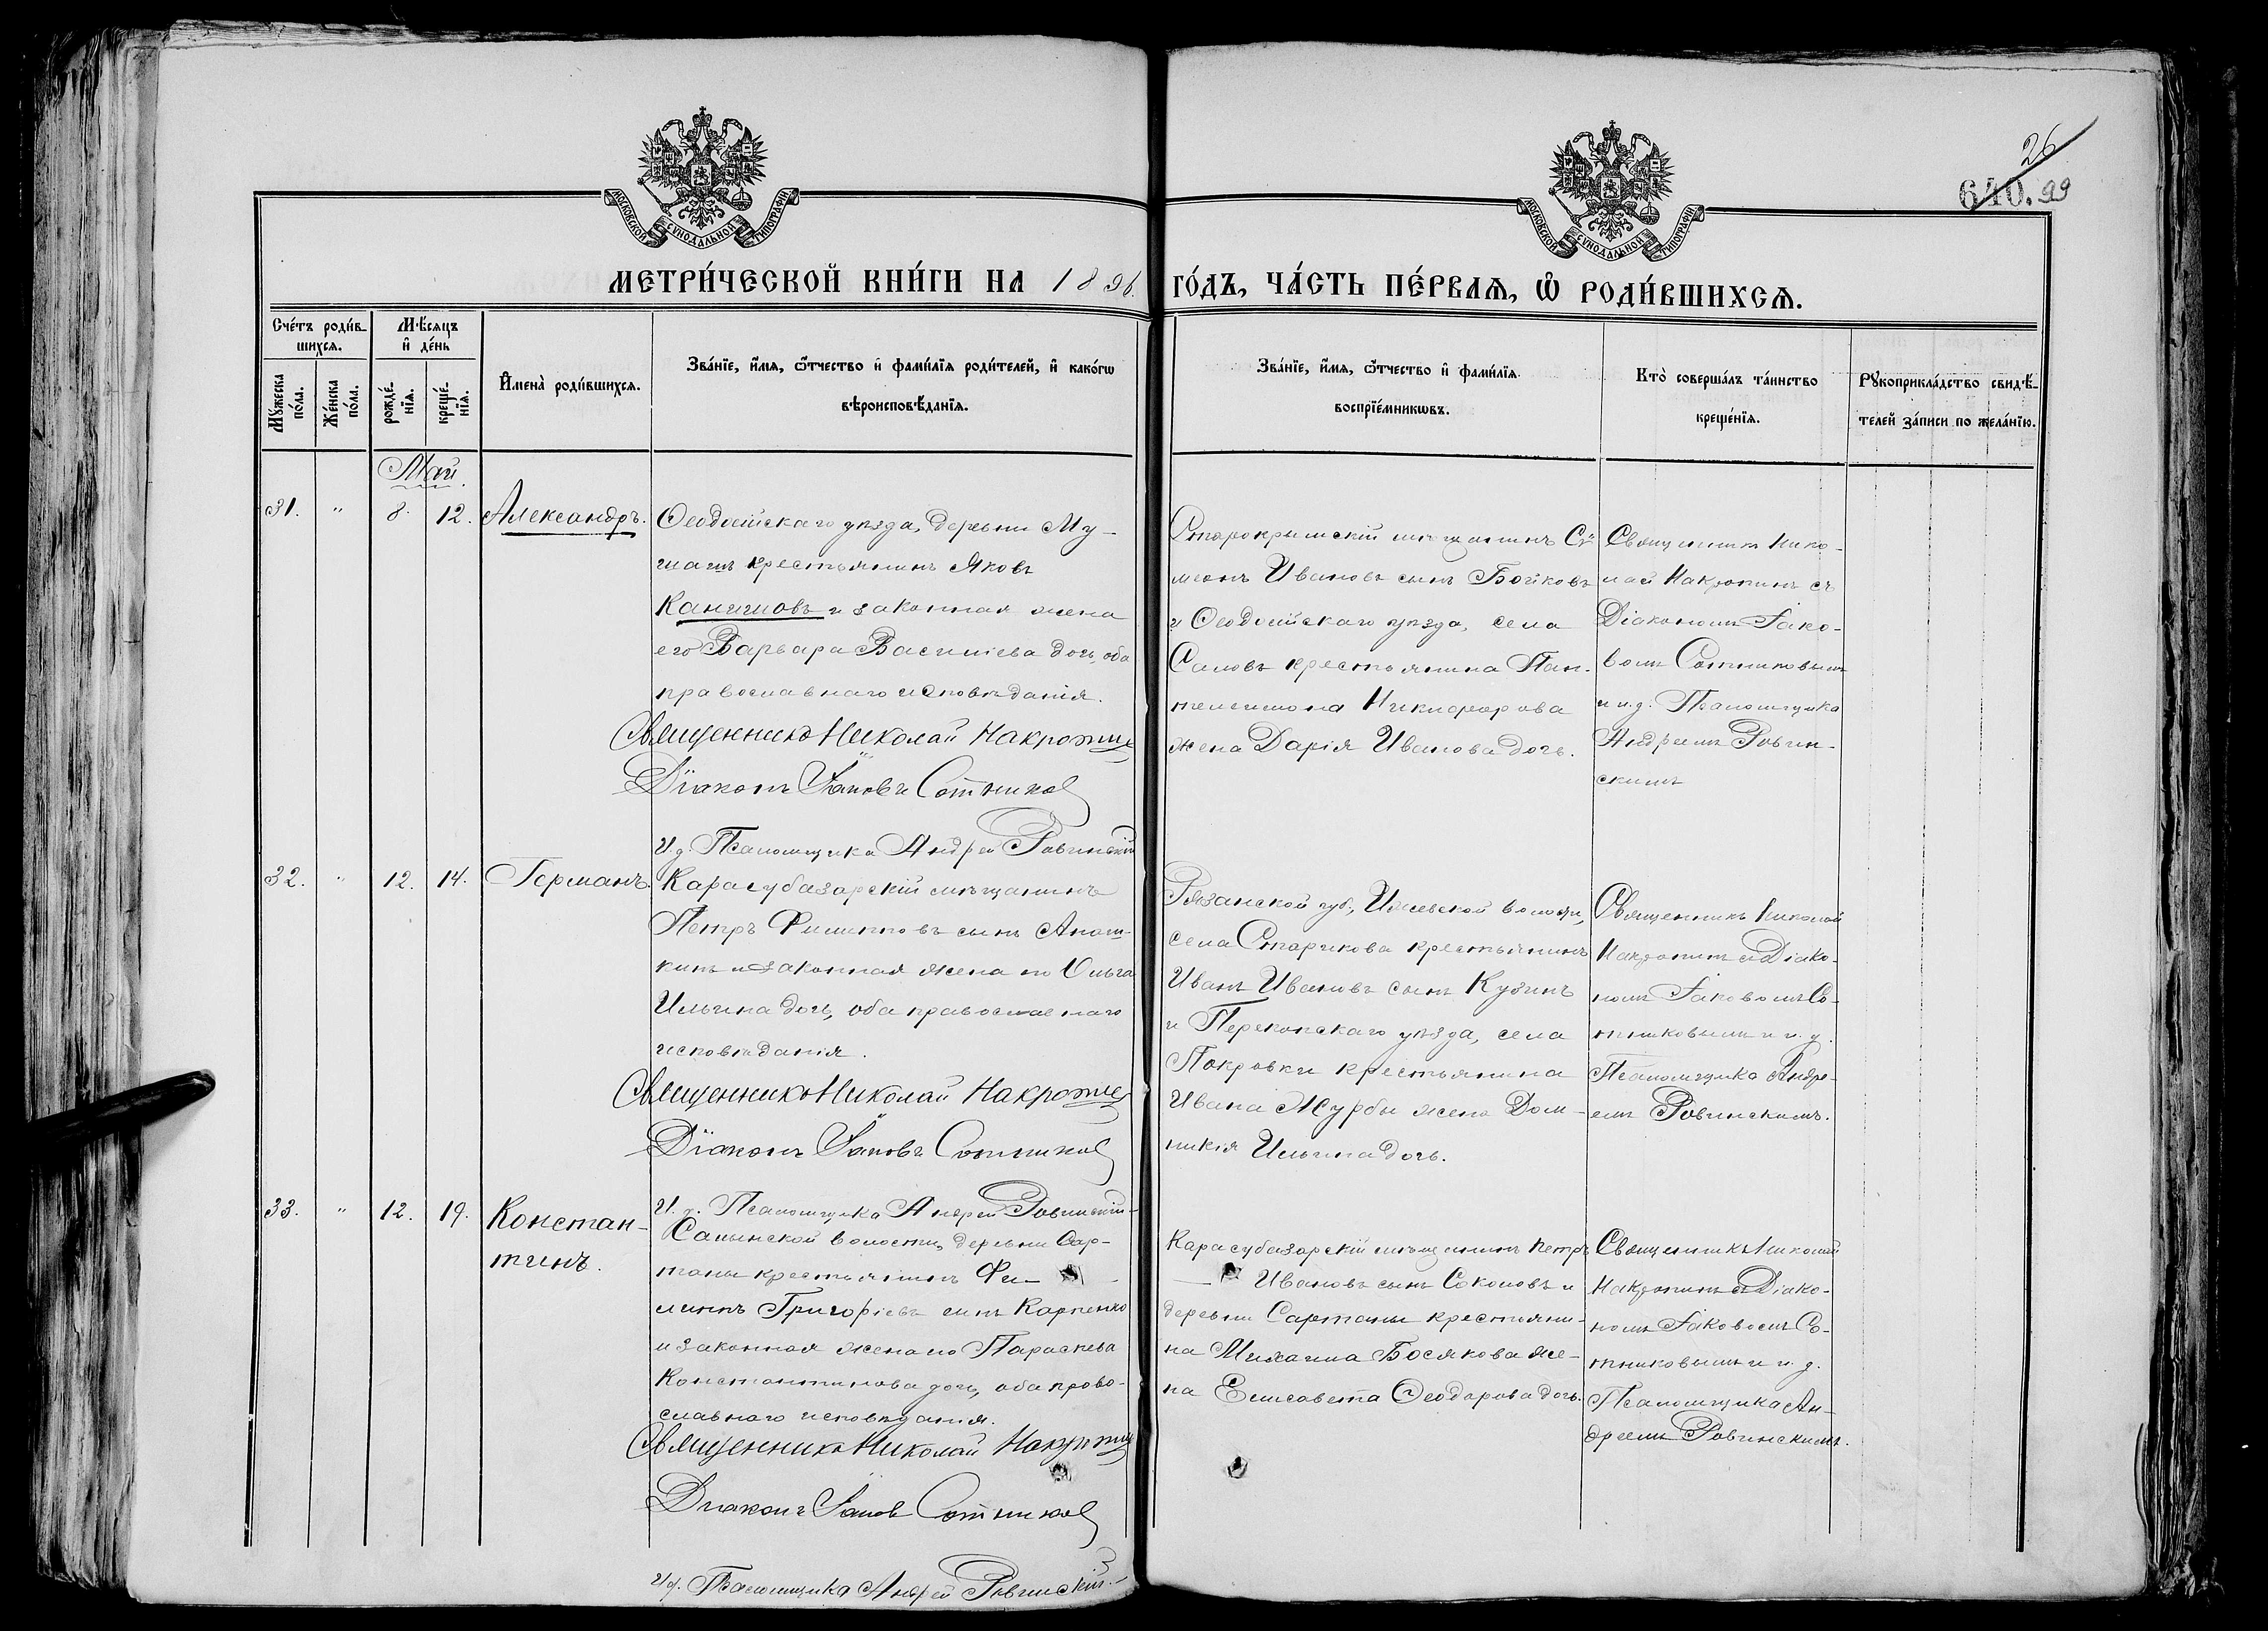 26
640. 99
МОСКОВСКОЙ СѴНОДАЛЬНОЙ ТИПОГРАФІИ
МОСКОВСКОЙ СѴНОДАЛЬНОЙ ТИПОГРАФІИ
МЕТРИ́ЧЕСКОЙ КНИ́ГИ НА 1896. ГО́ДЪ, ЧА́СТЬ ПЕ́РВАѦ, Ѡ҆ РОДИ́ВШИХСѦ.
Сче́тъ роди́в-
шихсѧ.
Мѣ́сѧцъ
и҆ де́нь
Мꙋ́жеска
по́ла.
Же́нска
по́ла.
рожде́-
нїѧ.
креще́-
нїѧ.
И҆мена̀ роди́вшихсѧ.
Зва́нїе, и҆́мѧ, ѻ҆́тчество и҆ фами́лїѧ роди́телей, и҆ како́гѡ
вѣроисповѣ́данїѧ.
Зва́нїе, и҆́мѧ, ѻ҆́тчество и҆ фами́лїѧ
воспрїе́мникѡвъ.
Кто̀ соверша́лъ та́инство
креще́нїѧ.
Рꙋкоприкла́дство свидѣ́-
телей за́писи по жела́нїю.
Май.
31. " 8. 12. Александръ.
Ѳеодосійскаго уѣзда, деревни Му-
крестьянинъ Яковъ
и законная жена
его Варвара Василіева дочь, оба
православнаго исповѣданія.
Священникъ Николай Накропинъ
Діаконъ Іаковъ Сотниковъ
И. д. Псаломщика Андрей Ровинскій
Старокрымскій мѣщанинъ Си-
меонъ Ивановъ сынъ Бойковъ
и Ѳеодосійскаго уѣзда, села
Саловъ крестьянина Пан-
телеимона Никифорова
жена Дарія Иванова дочь.
Священникъ Нико-
лай Накропинъ съ
Діакономъ Іако-
вомъ Сотниковымъ
и и. д. Псаломщика
Андреемъ Ровин-
скимъ
32. " 12. 14. Германъ.
Карасубазарскій мѣщанинъ
Петръ Филипповъ сынъ Апош-
кинъ и законная жена его Ольга
Ильина дочь, оба православнаго
исповѣданія.
Священникъ Николай Накропинъ
Діаконъ Іаковъ Сотниковъ
И. д. Псаломщика Андрей Ровинскій
Рязанской губ., Ижевской волости,
села Старикова крестьянинъ
Иванъ Ивановъ сынъ Кузинъ
и Перекопскаго уѣзда, села
Покровки крестьянина
Ивана Журбы жена Дом-
никія Ильина дочь.
Священникъ Николай
Накропинъ съ Діако-
номъ Іаковомъ Со-
тниковымъ и и. д.
Псаломщика Андре-
емъ Ровинскимъ.
33. " 12. 19. Констан-
тинъ.
Салынской волости, деревни Сар-
таны крестьянинъ Фи-
липпъ Григорьевъ сынъ Карпенко
и законная жена его Параскева
Константинова дочь, оба право-
славнаго исповѣданія.
Священникъ Николай Накропинъ
Діаконъ Іаковъ Сотниковъ
И. д. Псаломщика Андрей Ровинскій.
Карасубазарскій мѣщанинъ Петръ
Ивановъ сынъ Соколовъ и
деревни Сартаны крестьяни-
на Михаила Босякова же-
на Елисавета Ѳеодорова дочь.
Священникъ Николай
Накропинъ съ Діако-
номъ Іаковомъ Со-
тниковымъ и и. д.
Псаломщика Ан-
дреемъ Ровинскимъ.